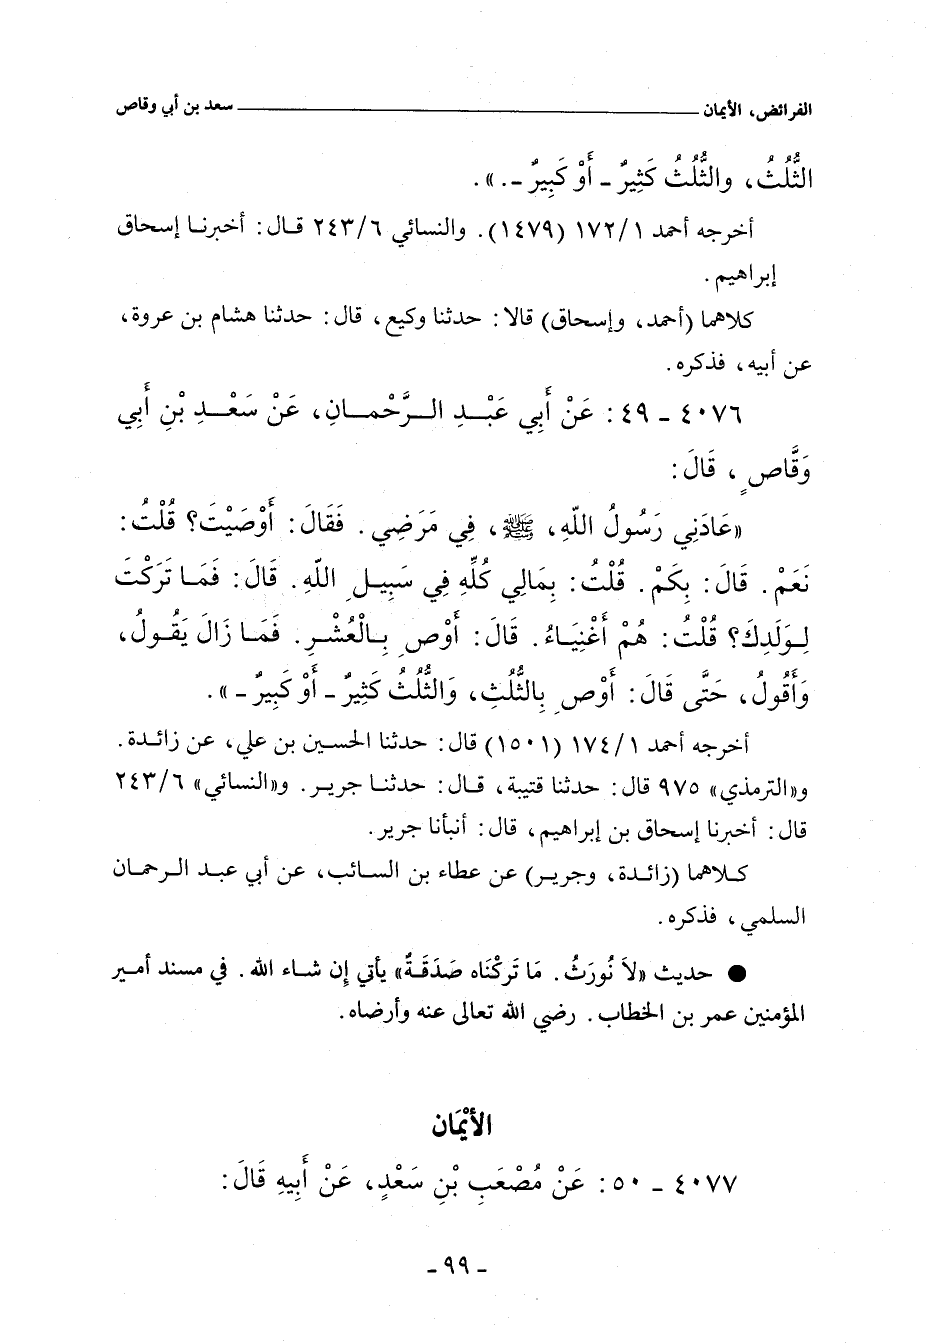 الفرائض، الأيمان ــــــ سعد بن أبي وقاص
الثُّلُثُ، والثُّلُثُ كَثِيرٌ ـ أَوْ كَبِيرٌ ـ.».
أخرجه أحمد ١/١٧٢ (١٤٧٩). والنسائي ٦/٢٤٣ قال: أخبرنا إسحاق
إبراهيم.
كلاهما (أحمد، وإسحاق) قالا: حدثنا وكيع، قال: حدثنا هشام بن عروة،
عن أبيه، فذكره.
٤٠٧٦ ـ ٤٩: عَنْ أَبِي عَبْدِ الرَّحْمانِ، عَنْ سَعْدِ بْنِ أَبِي
وَقَّاصٍ، قَالَ:
«عَادَنِي رَسُولُ اللّهِ، ﷺ، فِي مَرَضِي. فَقَالَ: أَوْصَيْتَ؟ قُلْتُ:
نَعَمْ. قَالَ: بِكَمْ. قُلْتُ: بِمَالِي كُلِّهِ فِي سَبِيلِ اللّهِ. قَالَ: فَمَا تَرَكْتَ
لِوَلَدِكَ؟ قُلْتُ: هُمْ أَغْنِيَاءُ. قَالَ: أَوْصِ بِالْعُشْرِ. فَمَا زَالَ يَقُولُ،
وَأَقُولُ، حَتَّى قَالَ: أَوْصِ بِالثُّلثِ، وَالثُّلُثُ كَثِيرٌ ـ أَوْ كَبِيرٌ ـ».
أخرجه أحمد ١/١٧٤ (١٥٠١) قال: حدثنا الحسين بن علي، عن زائدة.
و«الترمذي» ٩٧٥ قال: حدثنا قتيبة، قال: حدثنا جرير. و«النسائي» ٦/٢٤٣
قال: أخبرنا إسحاق بن إبراهيم، قال: أنبأنا جرير.
كلاهما (زائدة، وجرير) عن عطاء بن السائب، عن أبي عبد الرحمان
السلمي، فذكره.
● حديث «لاَ نُورَثُ. مَا تَرَكْنَاه صَدَقَةٌ» يأتي إِن شاء الله. في مسند أمير
المؤمنين عمر بن الخطاب. رضي الله تعالى عنه وأرضاه.
الأَيْمَان
٤٠٧٧ ـ ٥٠: عَنْ مُصْعَبِ بْنِ سَعْدٍ، عَنْ أَبِيهِ قَالَ:
ـ ٩٩ ـ